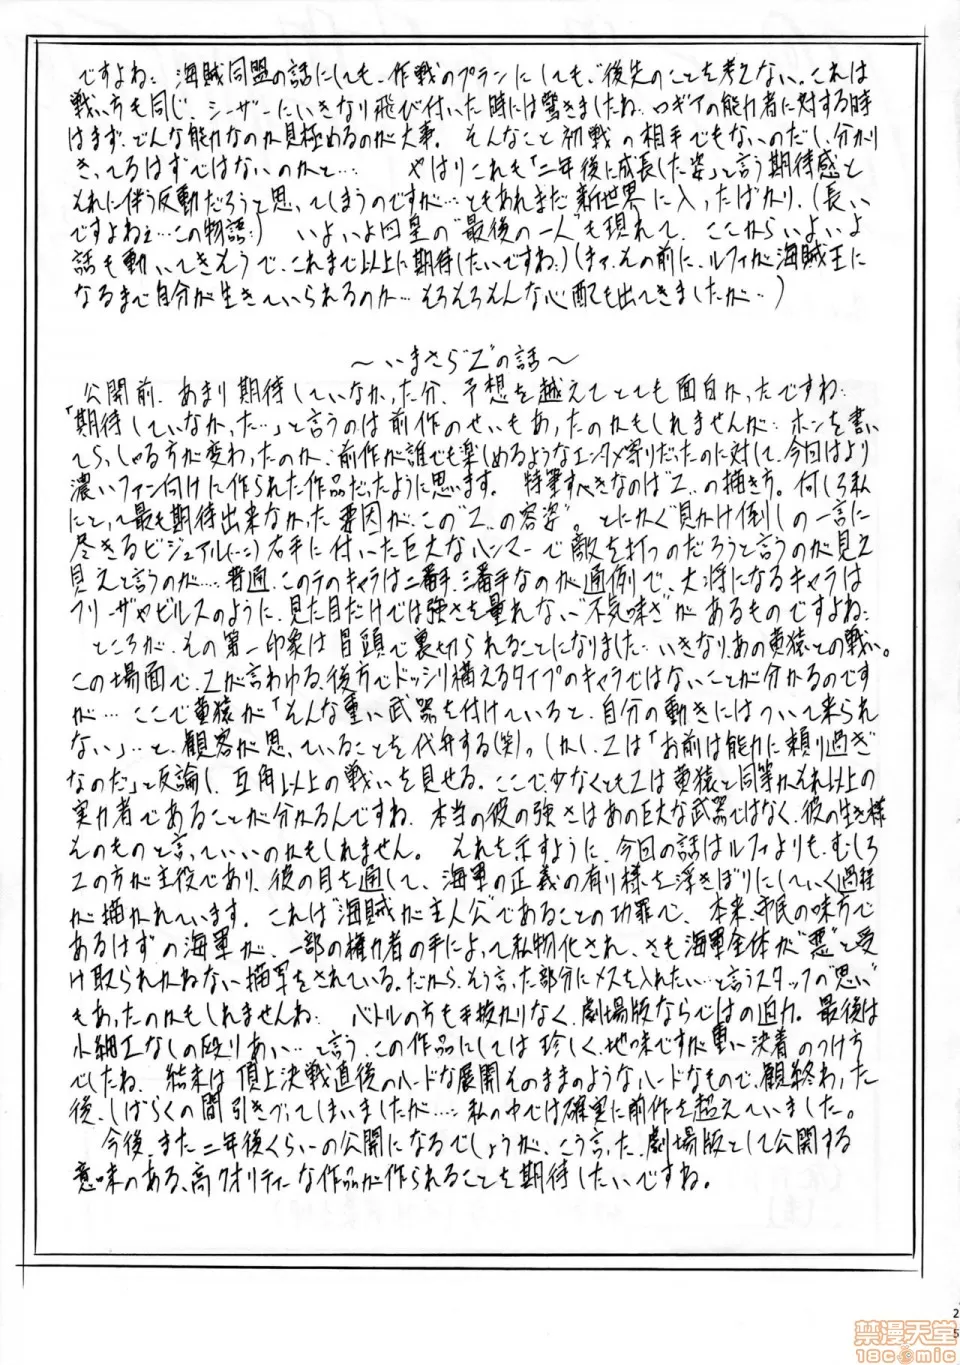 ですよね: 海賊同盟の話にしても、作戦のプランにしても、"後先のことを考えない。これは
戦い方も同じ、シーザーにいきなり飛び付いた時には驚きましたね、ロギアの能力者に対する時
はまず、どんな能力なのか見極めるのが大事。そんなこと初戦の相手でもないのだし、分かり
きってるはずではないのかと… やはりこれも「二年後に成長した姿」と言う期待感と
それに伴う反動だろうと思ってしまうのですが…ともあれまだ新世界に入ったばかり、(長い
ですよねぇ…この物語:) いよいよ四皇の"最後の一人"も現れて、ここからいよいよ
話も動いてきそうで、これまで以上に期待したいですね:)(まァ、その前に、ルフィが海賊王に
なるまで自分が生きていられるのか…そろそろそんな心配も出てきましたが…)
～いまさら"Z"の話～
公開前、あまり期待していなかった分、予想を越えてとても面白かったですね:
「期待していなかった…」と言うのは前作のせいもあったのかもしれませんが… ホンを書い
てらっしゃる方が変わったのか、前作が誰でも楽しめるようなエンタメ寄りだったのに対して、今回はより
濃いファン向けに作られた作品だったように思います。特筆すべきなのは"Z"の描き方。何しろ私
にとって最も期待出来なかった要因が、この"Z"の容姿"。とにかく"見かけ倒しの一言に
尽きるビジュアル(--;)右手に付いた巨大なハンマーで敵を打つのだろうと言うのが見え
見えと言うのが… 普通、このテのキャラは二番手、三番手なのが通例で、大将になるキャラは
フリーザやビルスのように、見た目だけでは強さを量れない"不気味さ"があるものですよね:
ところが、その第一印象は冒頭で裏切られることになりました… いきなり、あの黄猿との戦い。
この場面で、Zが言わゆる、後方でドッシリ構えるタイプのキャラではないことが分かるのです
が… ここで黄猿が「そんな重い武器を付けていると、自分の動きにはついて来られ
ない」…と、観客が思っていることを代弁する(笑)。しかし、Zは「お前は能力に頼り過ぎ
なのだ」と反論し、互角以上の戦いを見せる。ここで少なくともZは黄猿と同等かそれ以上の
実力者であることが分かるんですね、本当の彼の強さはあの巨大な武器ではなく、彼の生き様
そのものと言っていいのかもしれません。それを示すように、今回の話はルフィよりも、むしろ
Zの方が主役であり、彼の目を通して、海軍の正義の有り様を浮きぼりにしていく過程
が描かれています。これは"海賊が主人公"であることの功罪で、本来、市民の味方で
あるはずの海軍が、一部の権力者の手によって私物化され、さも海軍全体が"悪"と受
け取られかねない描写をされている。だから、そう言った部分にメスを入れたい…と言うスタッフの"思い"
もあったのかもしれませんね: バトルの方も手抜かりなく、劇場版ならではの迫力。最後は
小細工なしの殴りあい…と言う、この作品にしては珍しく、地味ですが重い決着のつけ方
でしたね、結末は頂上決戦直後のハードな展開そのままのようなハードなもので、観終わった
後、しばらくの間引きづってしまいましたが…: 私の中では確実に前作を超えていました。
今後、また二年後くらいの公開になるでしょうが、こう言った、劇場版として公開する
意味のある、高クオリティーな作品が作られることを期待したいですね。
25
禁漫天堂
18comic